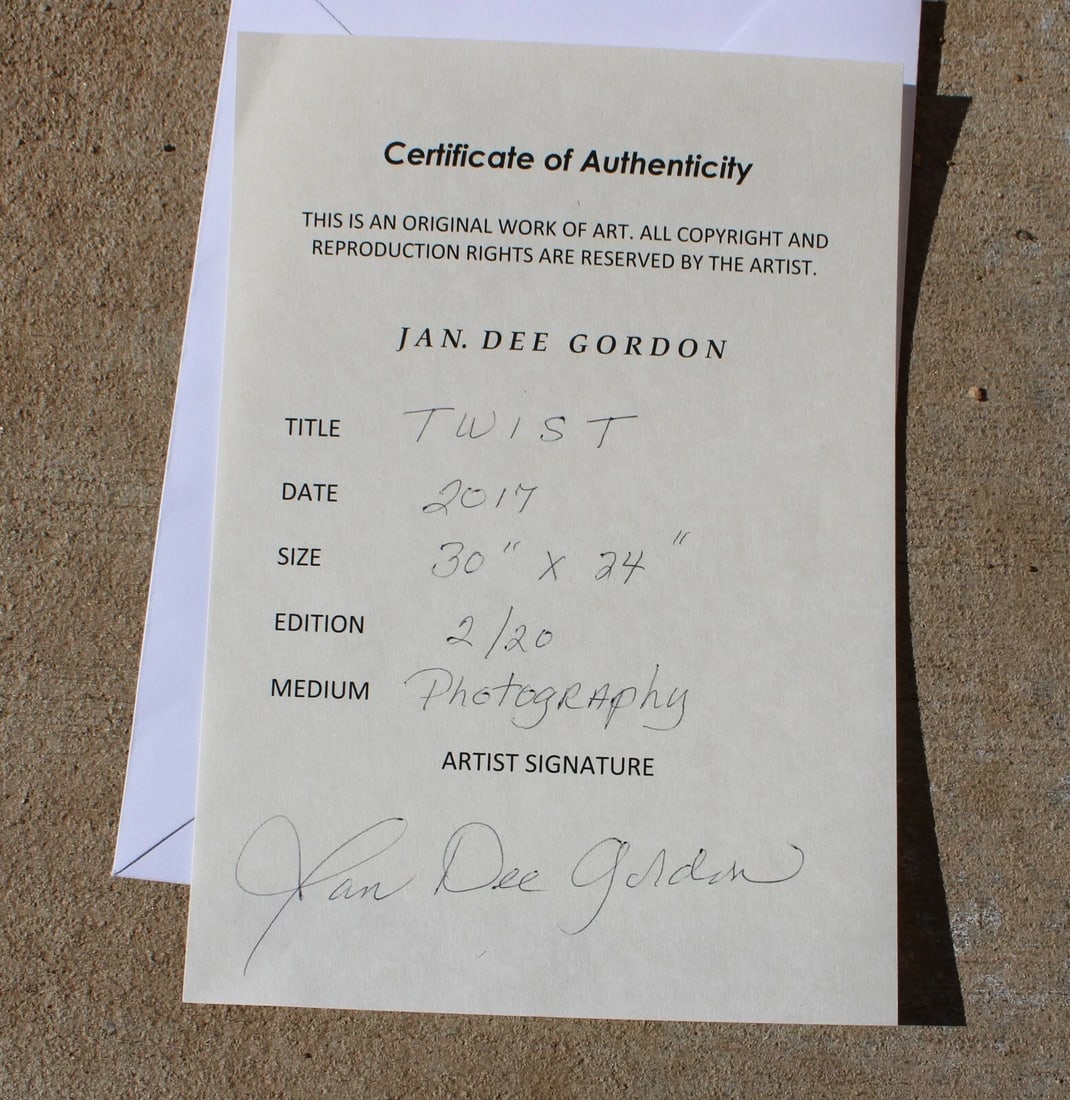 Certificate of Authenticity
THIS IS AN ORIGINAL WORK OF ART. ALL COPYRIGHT AND
REPRODUCTION RIGHTS ARE RESERVED BY THE ARTIST.
JAN. DEE GORDON
TITLE TWIST
DATE 2017
SIZE 30" X 24"
EDITION 2/20
MEDIUM Photography
ARTIST SIGNATURE
Jan Dee Gordon